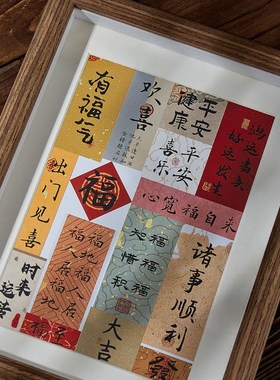 有福气
欢喜
平安
健康
平安
喜乐
好运发生
心宽福自来
出门见喜
福
福地福人居
福人居福地
诸事顺利
时来
运转
大吉
發